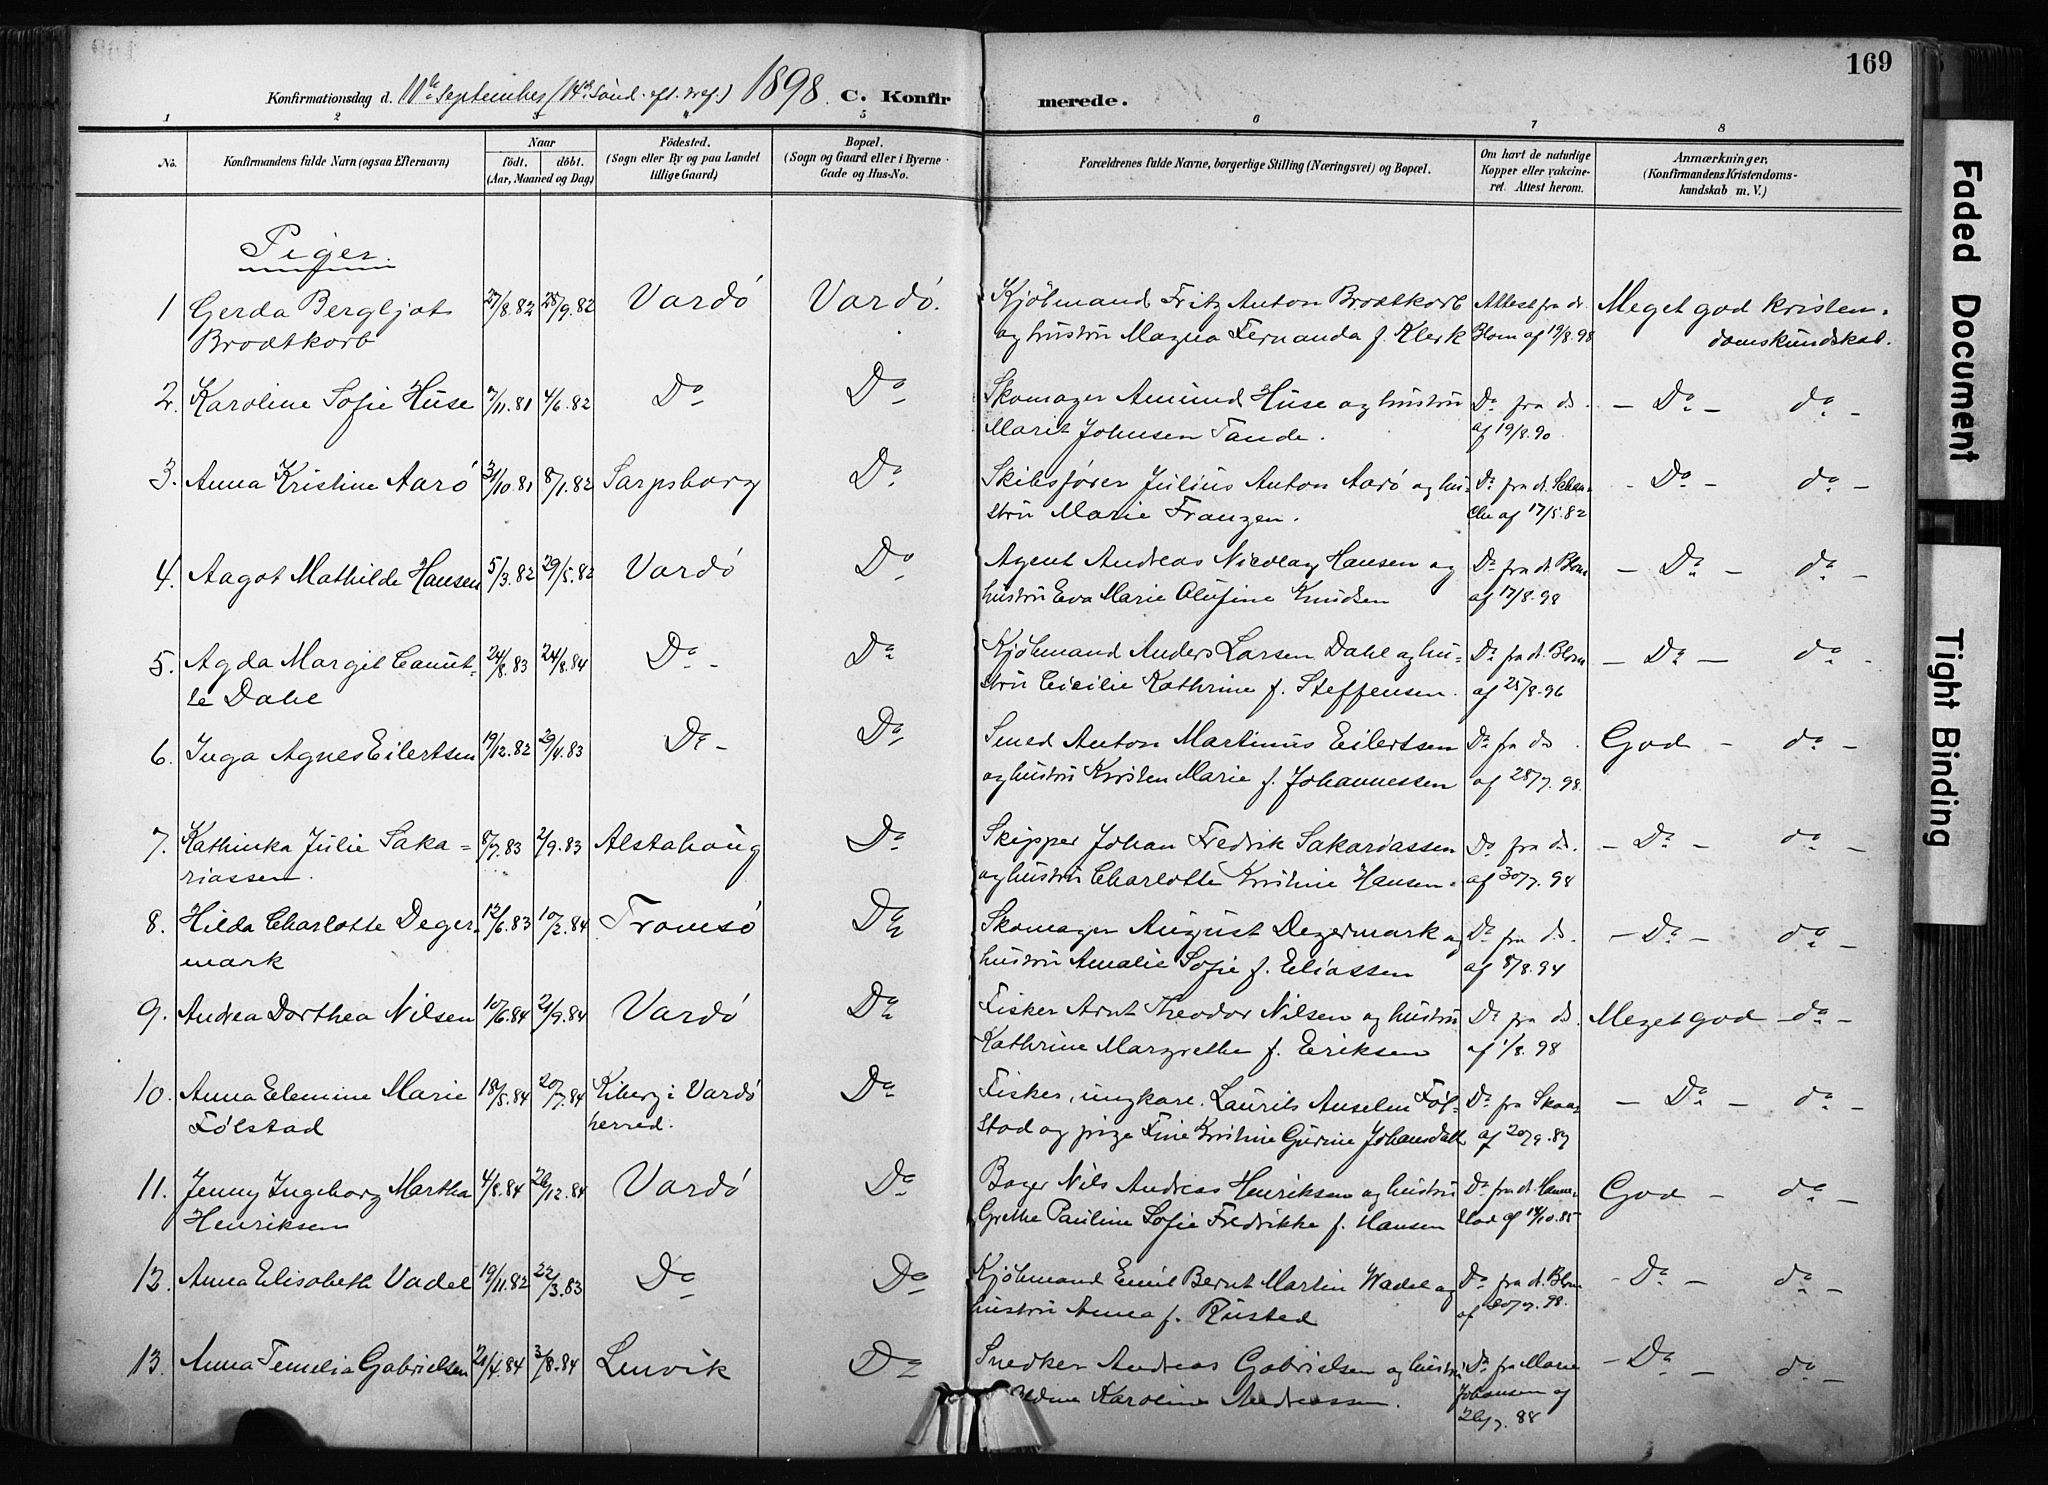 169
Konfirmationsdag d. 11te September (14de Sönd. eft. tref.) 1898. C. Konfir merede.
1 2 3 4 5 6 7 8
No. Konfirmandens fulde Navn (ogsaa Efternavn) Naar födt. döbt. (Aar, Maaned og Dag) Födested. (Sogn eller By og paa Landet tillige Gaard) Bopæl. (Sogn og Gaard eller i Byerne Gade og Hus-No. Forældrenes fulde Navne, borgerlige Stilling (Næringsvei) og Bopæl. Om havt de naturlige Kopper eller vakcineret. Attest herom. Anmærkninger, (Konfirmandens Kristendomskundskab m. V.)
Piger.
1 Gerda Bergljot 27/8.82 28/9.82 Vardö Vardö. Kjöbmand Fritz Anton Brodtkorb Attest fra dr. Meget god kristen-
Brodtkorb og hustru Magna Fernanda f. Klerk Blom af 19/8.98 domskundskab.
2. Karoline Sofie Huse 7/11.81 4/6.82 Do Do Skomager Amund Huse og hustru Do fra do. - Do - do -
Marit Johnsen Tande. af 19/8.90
3. Anna Kristine Aarö 31/10.81 8/1.82 Sarpsborg Do Skibsfører Julius Anton Aarö og hu- Do fra dr. - Do - do -
stru Marie Franzen. af 17/5.82
4. Aagot Mathilde Hansen 5/3.82 29/5.82 Vardö Do Agent Andreas Nicolay Hansen og Do fra dr. Blom - Do - do -
hustru Eva Marie Olufine Knudsen af 17/8.98
5. Agda Margit Camil- 24/8.83 24/8.84 Do - Do Kjöbmand Anders Larsen Dahl og hu- Do fra dr. Blom - Do - do -
le Dahl stru Cicilie Kathrine f. Steffensen. af 25/8.96
6. Inga Agnes Eilertsen 19/12.82 29/4.83 Do - Do Smed Anton Martinus Eilertsen Do fra do. God - do -
og hustru Kirsten Marie f. Johannessen af 28/7.98.
7. Kathinka Julie Saka- 8/7.83 2/9.83 Alstahoug Do Skipper Johan Fredrik Sakariassen Do fra do. - Do - do -
riassen. og hustru Charlotte Kristine Hansen. af 30/7.98
8. Hilda Charlotte Deger- 12/6.83 10/2.84 Tromsö Do Skomager August Degermark og Do fra do. - Do - do -
mark hustru Amalie Sofie f. Eliassen af 8/8.94
9. Andrea Dorthea Nilsen 10/6.84 21/9.84 Vardö Do Fisker Arnt Theodor Nilsen og hustru Do fra do. Meget god - do -
Kathrine Margrethe f. Eriksen af 1/8.98
10. Anna Elemine Marie 18/5.84 20/7.84 Kiberg i Vardö Do Fisker, ungkarl. Laurits Anselm Föl- Do fra - Do - do -
Fölstad herred. stad og pige Fine Kristine Gurine Johansdatt. af 20/9.87
11. Jenny Ingeborg Martha 4/8.84 26/12.84 Vardö Do Bager Nils Andreas Henriksen og hustru Do fra dr. Hamer- God - do -
Henriksen Grethe Pauline Sofie Fredrikke f. Hansen stad af 14/10.85
12. Anna Elisabeth Vadel 19/11.82 22/3.83 Do Do Kjöbmand Emil Bernt Martin Wadel og Do fra dr. Blom - Do - do -
hustru Anna f. Rustad af 20/7.98.
13. Anna Gabrielsen 21/4.84 3/8.84 Lenvik Do Snedker Andreas Gabrielsen og hustru Do fra Marie - Do - do -
Karoline Andreassen. Johansen af
88
Faded Document
Tight Binding